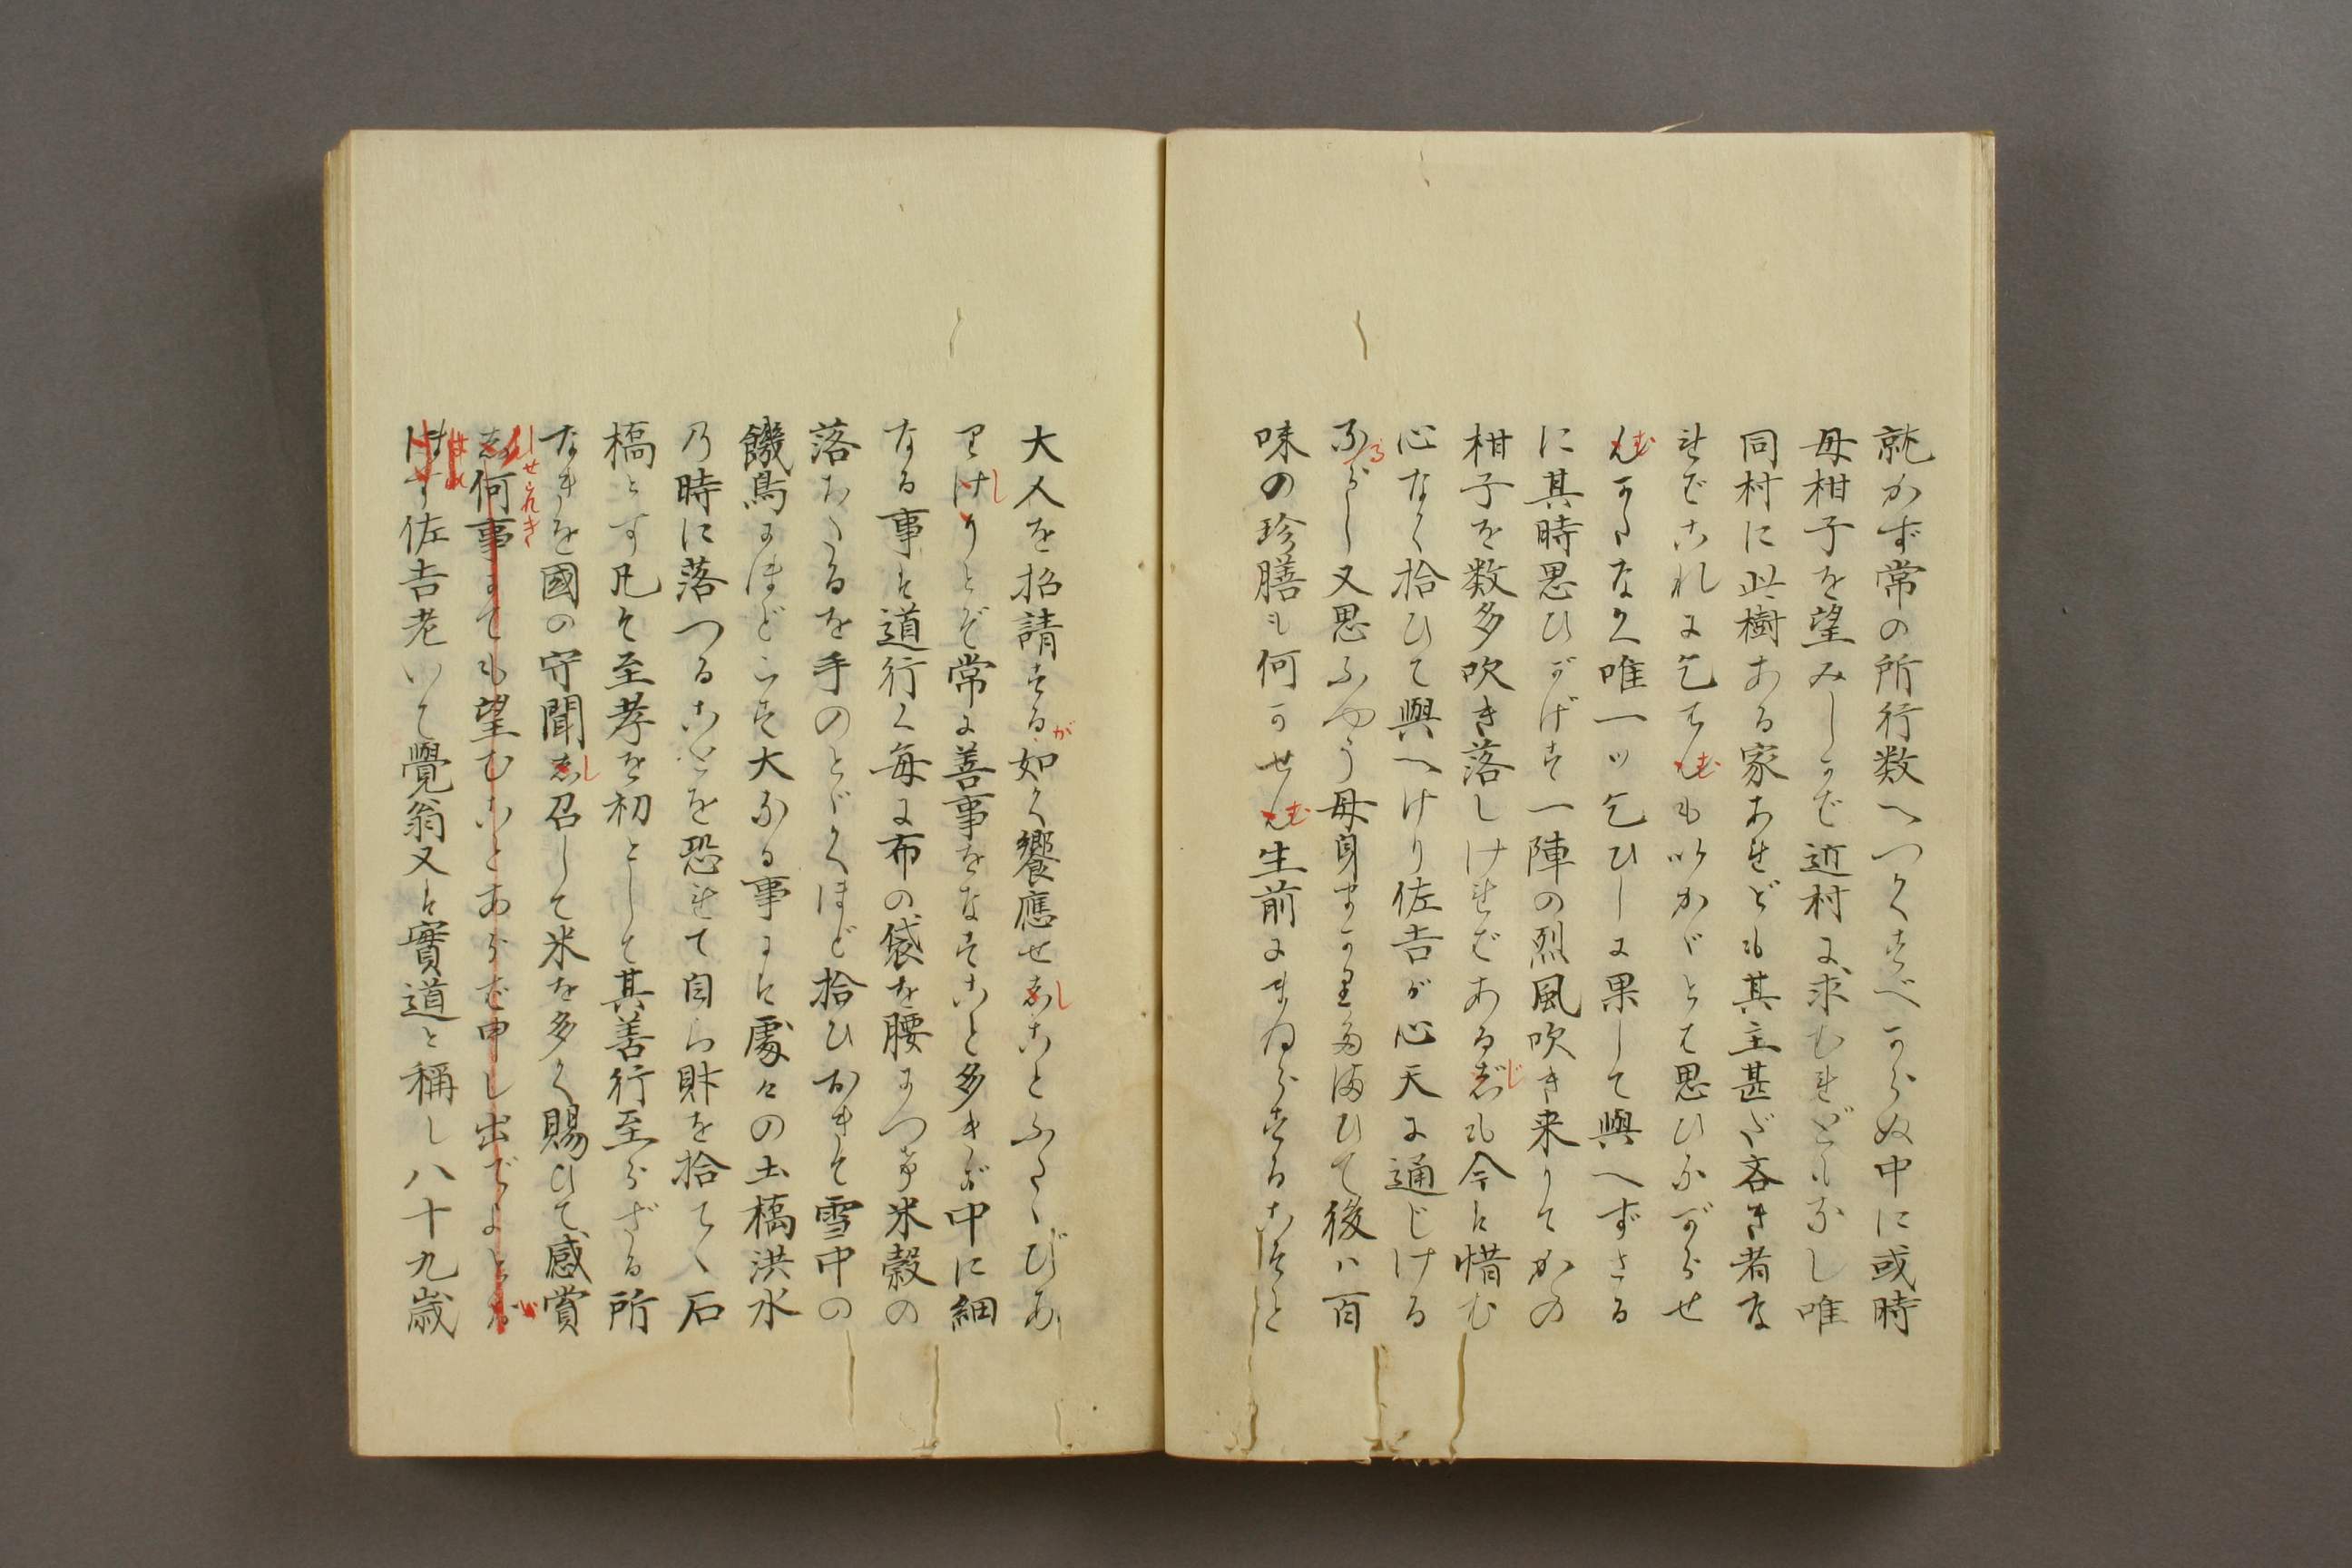 就かず常の所行数へつくすべからぬ中に或時
母柑子を望みしかで近村に求むれどもなし唯
同村に此樹ある家あれども其主甚だ吝き者な
ればこれに乞てんむも以かゞとは思ひながらせ
んむかたなく唯一ツ乞ひしに果して與へずさる
に其時思ひがけず一陣の烈風吹き来りてかの
柑子を数多吹き落しければあるじじも今は惜む
心なく拾ひて與へけり佐吉が心天に通じける
なるらし又思ふやう母身まかり玉ひて後ハ百
味の珍膳も何かせんむ生前にまゐらするこそと
大人を招請するが如く饗應せしし ことふたゝびあ
りけしりとぞ常に善事をなすこと多きが中に細
なる事は道行く毎に布の袋を腰につけ米穀の
落ちたるを手のとゞくほど拾ひおきて雪中の
饑鳥にほどこす大なる事には處々の土橋洪水
乃時に落つることを恐れて自ら財を拾てゝ石
橋とす凡そ至孝を初として其善行至らざる所
なきを國の守聞しし召して米を多く賜ひて感賞
何事にても望むことあらば申し出でよと
佐吉老いて覺翁又は實道と稱し八十九歳